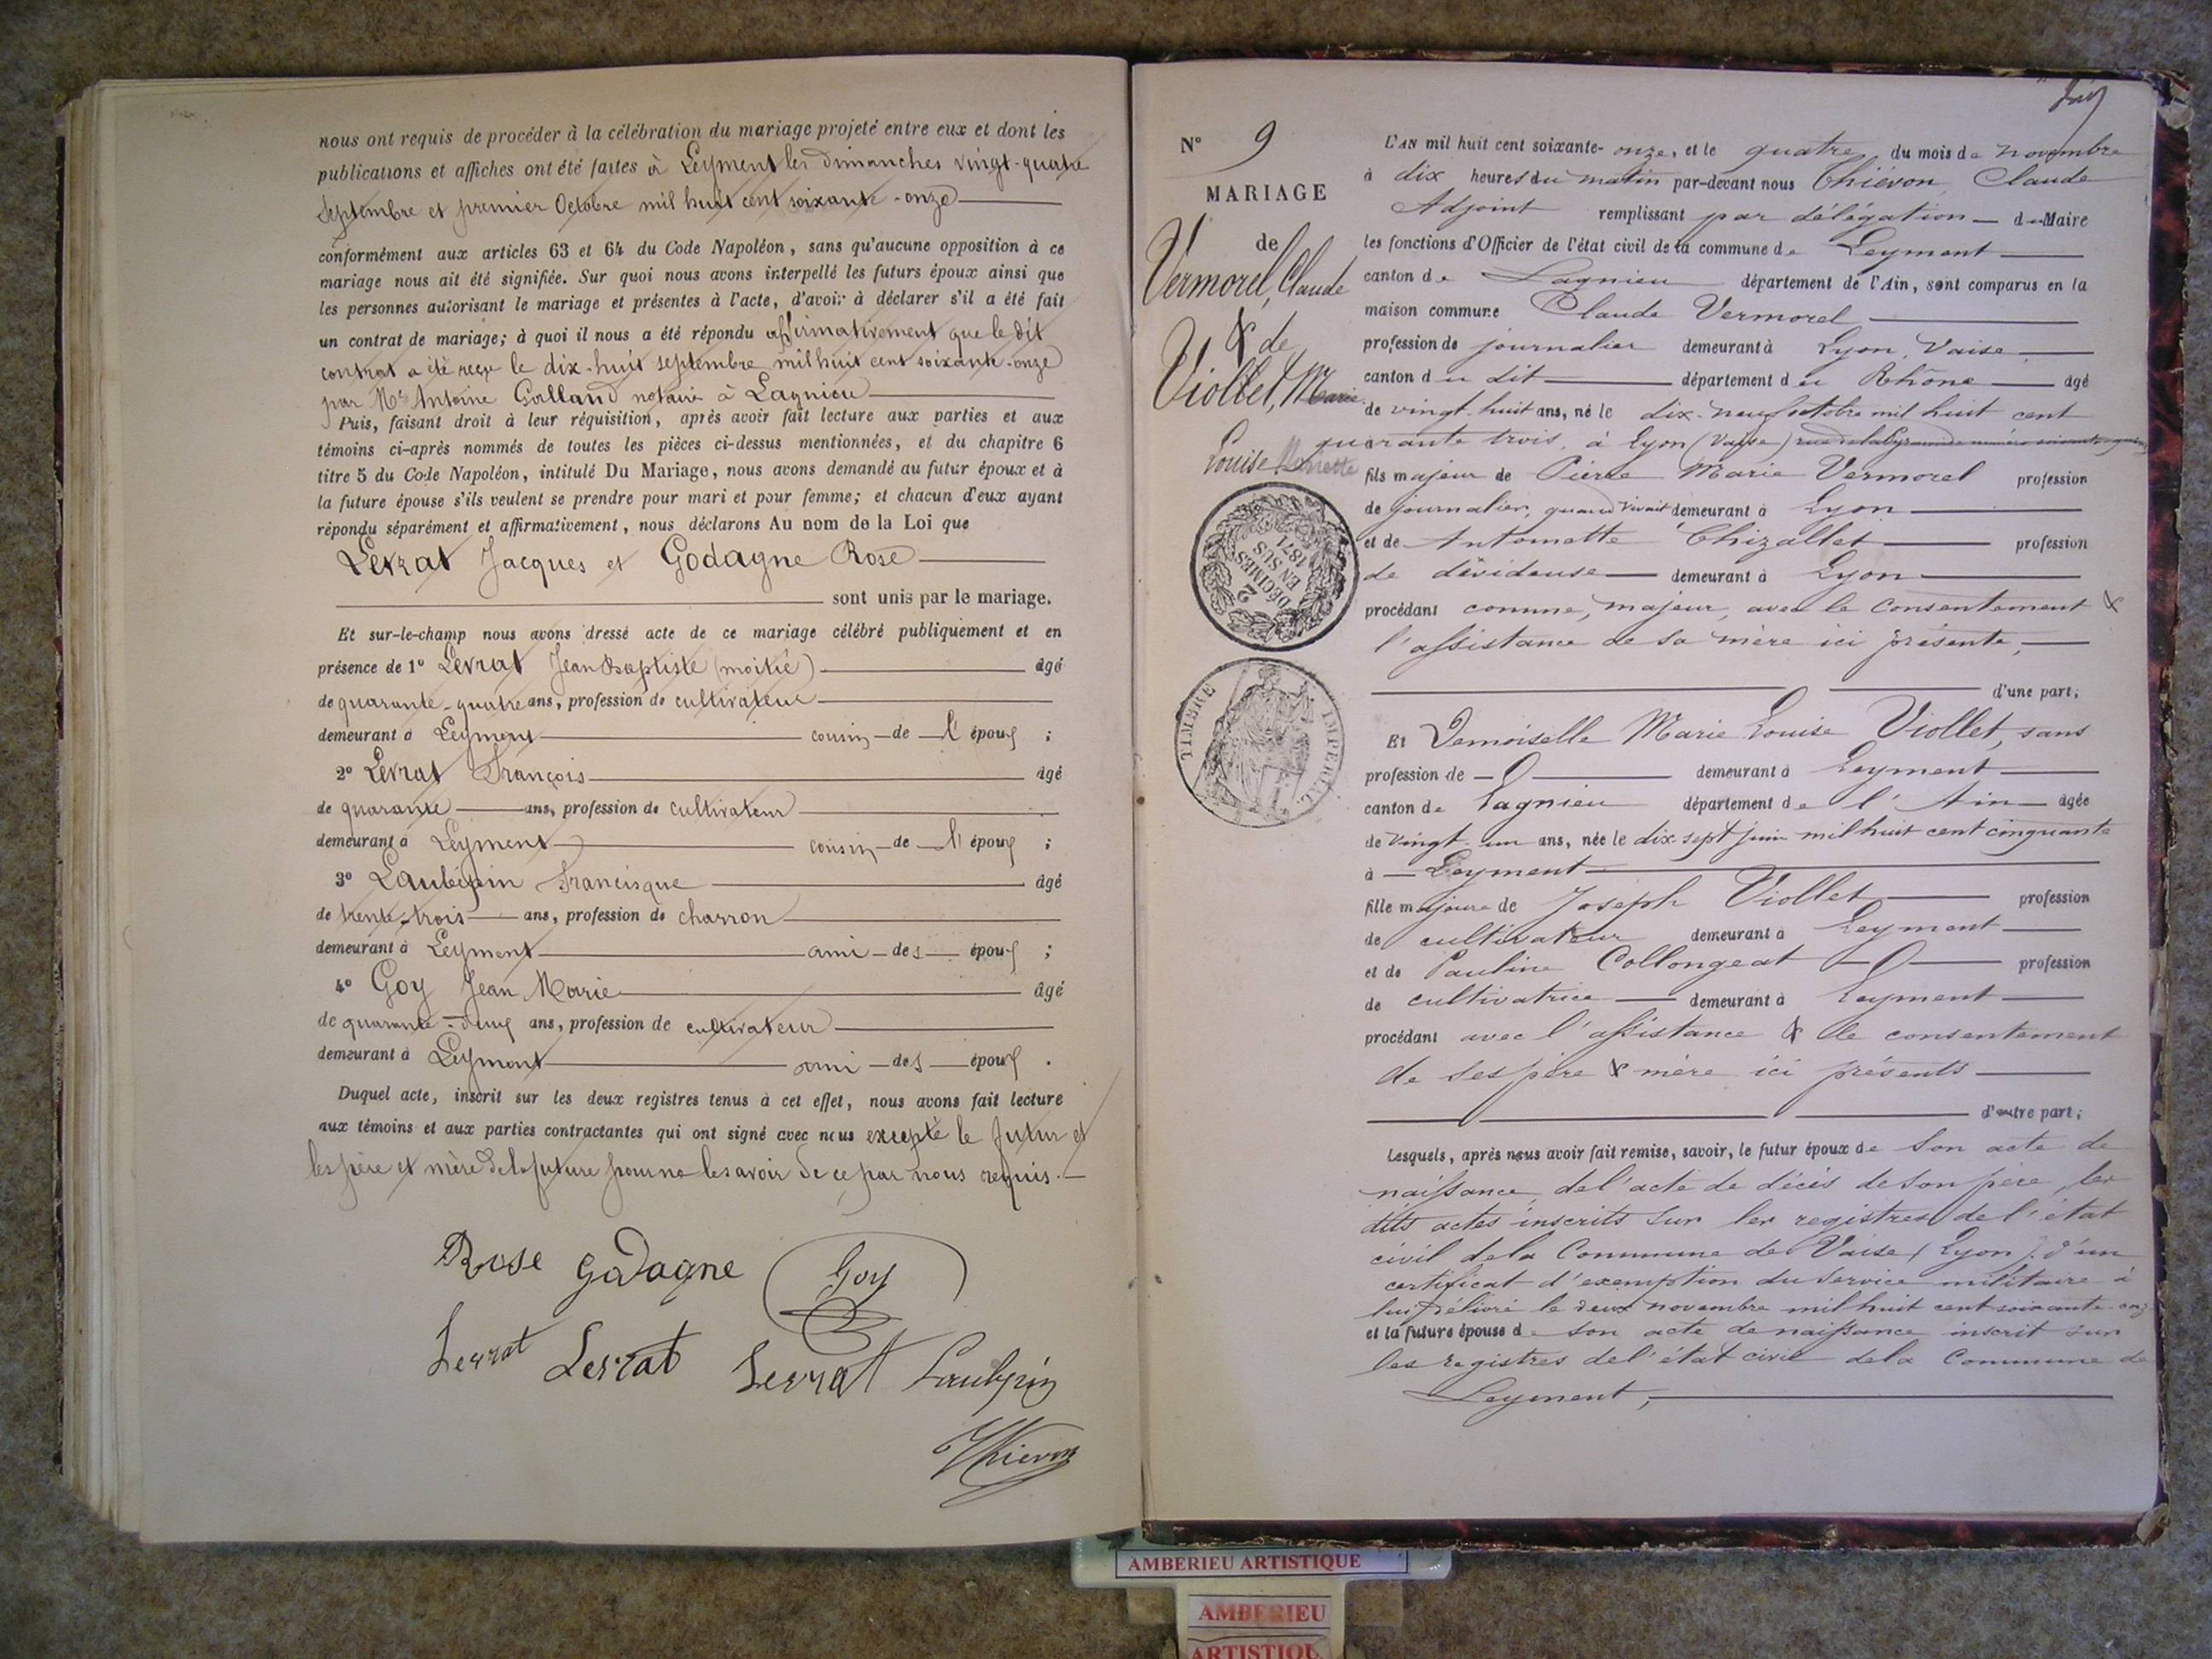 nous ont requis de procéder à la célébration du mariage projeté entre eux et dont les
publications et affiches ont été faites à Leyment les dimanches vingt-quatre
Septembre et premier Octobre mil huit cent soixante-onze
conformément aux articles 63 et 64 du Code Napoléon, sans qu'aucune opposition à ce
mariage nous ait été signifiée. Sur quoi nous avons interpellé les futurs époux ainsi que
les personnes autorisant le mariage et présentes à l'acte, d'avoir à déclarer s'il a été fait
un contrat de mariage; à quoi il nous a été répondu affirmativement que le dit
contrat a été reçu le dix-huit septembre mil huit cent soixante-onze
par Me Antoine Golland notaire à Lagnieu
Puis, faisant droit à leur réquisition, après avoir fait lecture aux parties et aux
témoins ci-après nommés de toutes les pièces ci-dessus mentionnées, et du chapitre 6
titre 5 du Code Napoléon, intitulé Du Mariage, nous avons demandé au futur époux et à
la future épouse s'ils veulent se prendre pour mari et pour femme; et chacun d'eux ayant
répondu séparément et affirmativement, nous déclarons Au nom de la Loi que
Levrat Jacques et Godagne Rose
sont unis par le mariage.
Et sur-le-champ nous avons dressé acte de ce mariage célébré publiquement et en
présence de 1° Levrat Jean Baptiste (moitié) âgé
de quarante-quatre ans, profession de cultivateur
demeurant à Leyment cousin de l'époux ;
2° Levrat François âgé
de quarante ans, profession de cultivateur
demeurant à Leyment cousin de l'époux ;
3° Laubépin Francisque âgé
de trente-trois ans, profession de charron
demeurant à Leyment ami des époux ;
4° Goy Jean Marie âgé
de quarante-deux ans, profession de cultivateur
demeurant à Leyment ami des époux .
Duquel acte, inscrit sur les deux registres tenus à cet effet, nous avons fait lecture
aux témoins et aux parties contractantes qui ont signé avec nous excepté le futur et
les père et mère de la future pour ne le savoir de ce par nous requis.
Rose godagne Goy
Levrat Levrat Levrat Laubépin
Thievon
N° 9
MARIAGE
de
Vermorel, Claude
& de
Viollet, Marie
Louise
2
DÉCIMES
EN SUS
1871
TIMBRE IMPÉRIAL
L'AN mil huit cent soixante-onze, et le quatre du mois de novembre
à dix heures du matin par-devant nous Thiévon Claude
Adjoint remplissant par délégation du Maire
les fonctions d'Officier de l'état civil de la commune de Leyment
canton de Lagnieu département de l'Ain, sont comparus en la
maison commune Claude Vermorel
profession de journalier demeurant à Lyon, Vaise
canton du dit département du Rhône âgé
de vingt-huit ans, né le dix-neuf octobre mil huit cent
quarante trois, à Lyon (Vaise)
fils majeur de Pierre Marie Vermorel profession
de journalier, quand vivait demeurant à Lyon
et de Antoinette Chizallet profession
de dévideuse demeurant à Lyon
procédant comme, majeur, avec le consentement &
l'assistance de sa mère ici présente,
d'une part;
Et Demoiselle Marie Louise Viollet, sans
profession de demeurant à Leyment
canton de Lagnieu département de l'Ain âgée
de vingt-un ans, née le dix-sept juin mil huit cent cinquante
à Leyment
fille majeure de Joseph Viollet profession
de cultivateur demeurant à Leyment
et de Pauline Collongeat profession
de cultivatrice demeurant à Leyment
procédant avec l'assistance & le consentement
de ses père & mère ici présents
d'autre part;
Lesquels, après nous avoir fait remise, savoir, le futur époux de son acte de
naissance, de l'acte de décès de son père, les
dits actes inscrits sur les registres de l'état
civil de la Commune de Vaise (Lyon), d'un
certificat d'exemption du service militaire à
lui délivré le deux novembre mil huit cent soixante-onz
et la future épouse de son acte de naissance inscrit sur
les registres de l'état civil de la Commune de
Leyment,
AMBERIEU ARTISTIQUE
AMBERIEU
ARTISTIQU